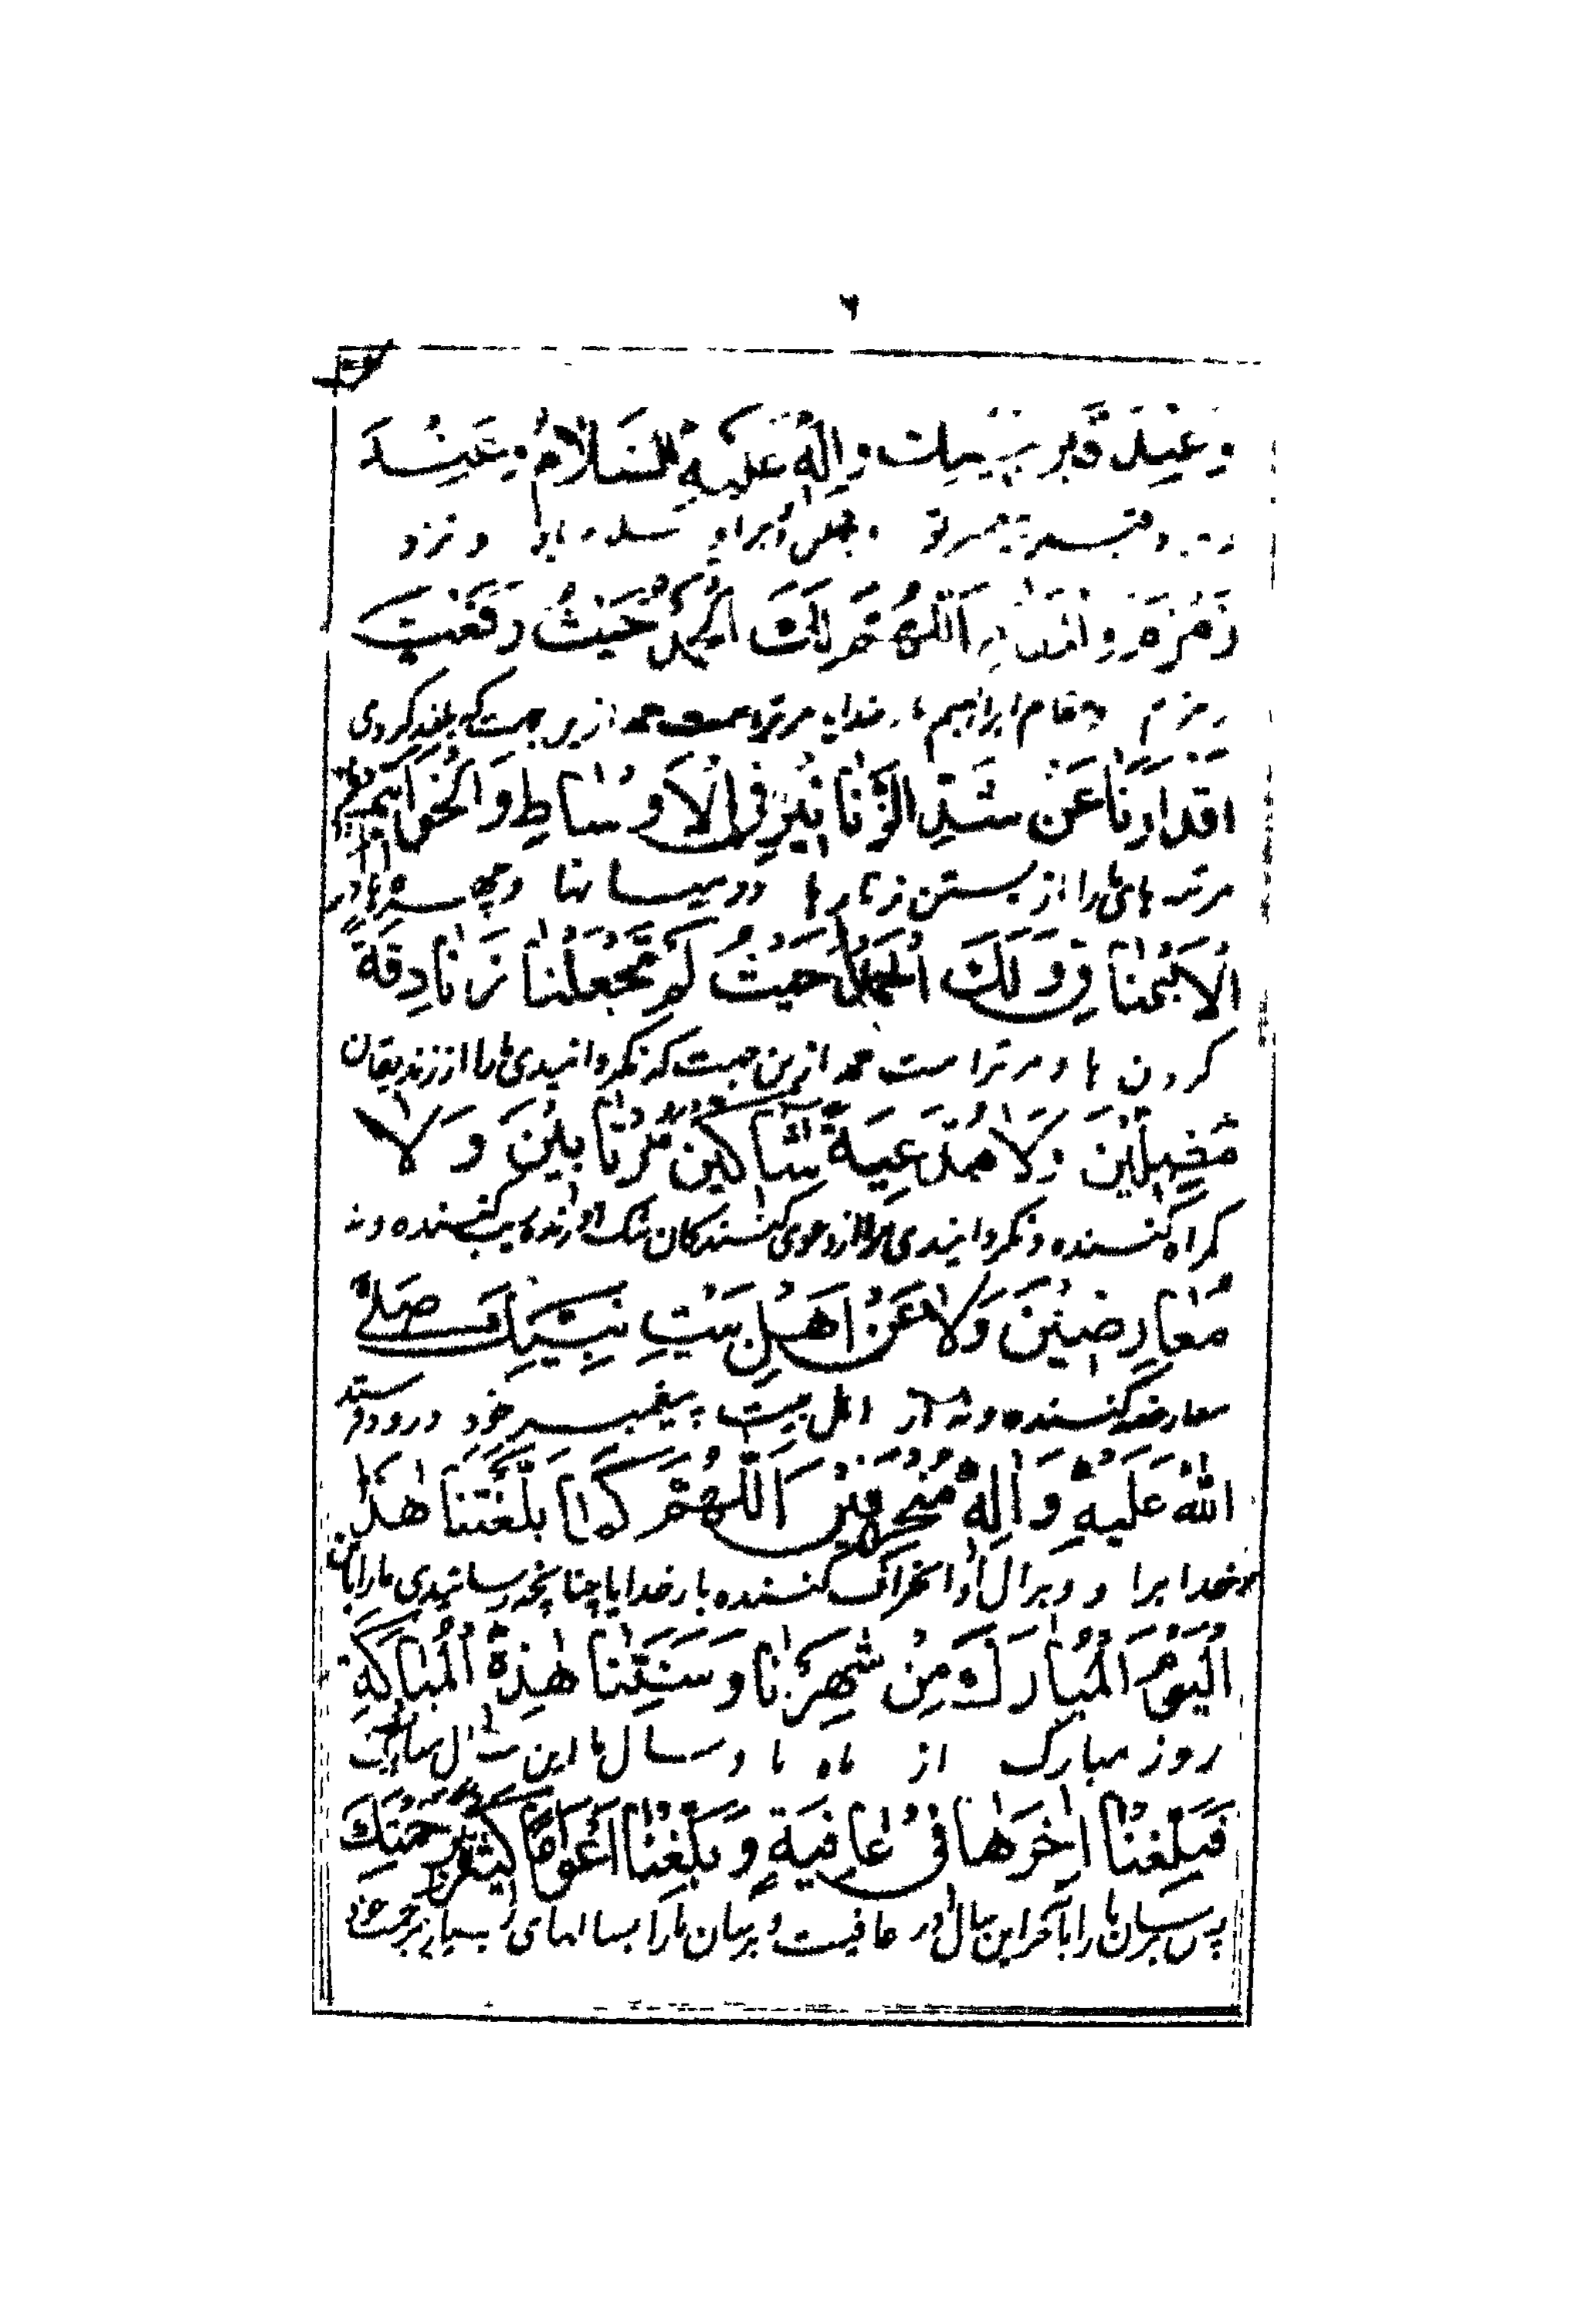 ٦
وَعِنْدَ قَبْرِ نَبِيِّكَ وَاٰلِهٖ عَلَيْهِ السَّلَامُ وَعِنْدَ
و نزد
زَمْزَمَ وَ اَللّٰهُمَّ لَكَ الْحَمْدُ حَيْثُ رَفَعْتَ
زمزم و مقام ابراهیم بار خدایا مر تراست حمد ازین جهت که بلند کردی
اَقْدَارَنَا عَنْ شَدِّ الزَّنَانِيْرِ فِی الْاَوْسَاطِ وَالْخَوَاتِيْمِ فِی
مرتبه های ما را از بستن زنارها در میانها
الْاَيْمَانِ وَلَكَ الْحَمْدُ حَيْثُ لَمْ تَجْعَلْنَا زَنَادِقَةً
کردن ها و مر تراست حمد ازین جهت که نگردانیدی ما را از زندیقان
مُضِلِّيْنَ وَلَا مُدَّعِيَةً شَاكِّيْنَ مُرْتَابِيْنَ وَلَا
گمراه کننده و نگردانیدی ما را از دعوی کنندگان شک آورنده ریب کننده و نه
مُعَارِضِيْنَ وَلَا عَنْ اَهْلِ بَيْتِ نَبِيِّكَ صَلَّی
معارضه کننده و نه از اهل بیت پیغمبر خود درود فرستد
اللّٰهُ عَلَيْهِ وَاٰلِهٖ مُنْحَرِفِيْنَ اَللّٰهُمَّ كَمَا بَلَّغْتَنَا هٰذَا
خدا برا و و بر آل او انحراف کننده بار خدایا چنانچه رسانیدی ما را باین
الْيَوْمَ الْمُبَارَكَ مِنْ شَهْرِنَا وَسَنَتِنَا هٰذِهِ الْمُبَارَكَةِ
روز مبارک از ماه ما و سال ما این سال مبارک
فَبَلِّغْنَا اٰخِرَهَا فِی عَافِيَةٍ وَبَلِّغْنَا اَعْوَامًا كَثِيْرَةً بِرَحْمَتِكَ
پس برسان ما را بآخر این سال در عافیت و برسان ما را بسالهای بسیار برحمت خود